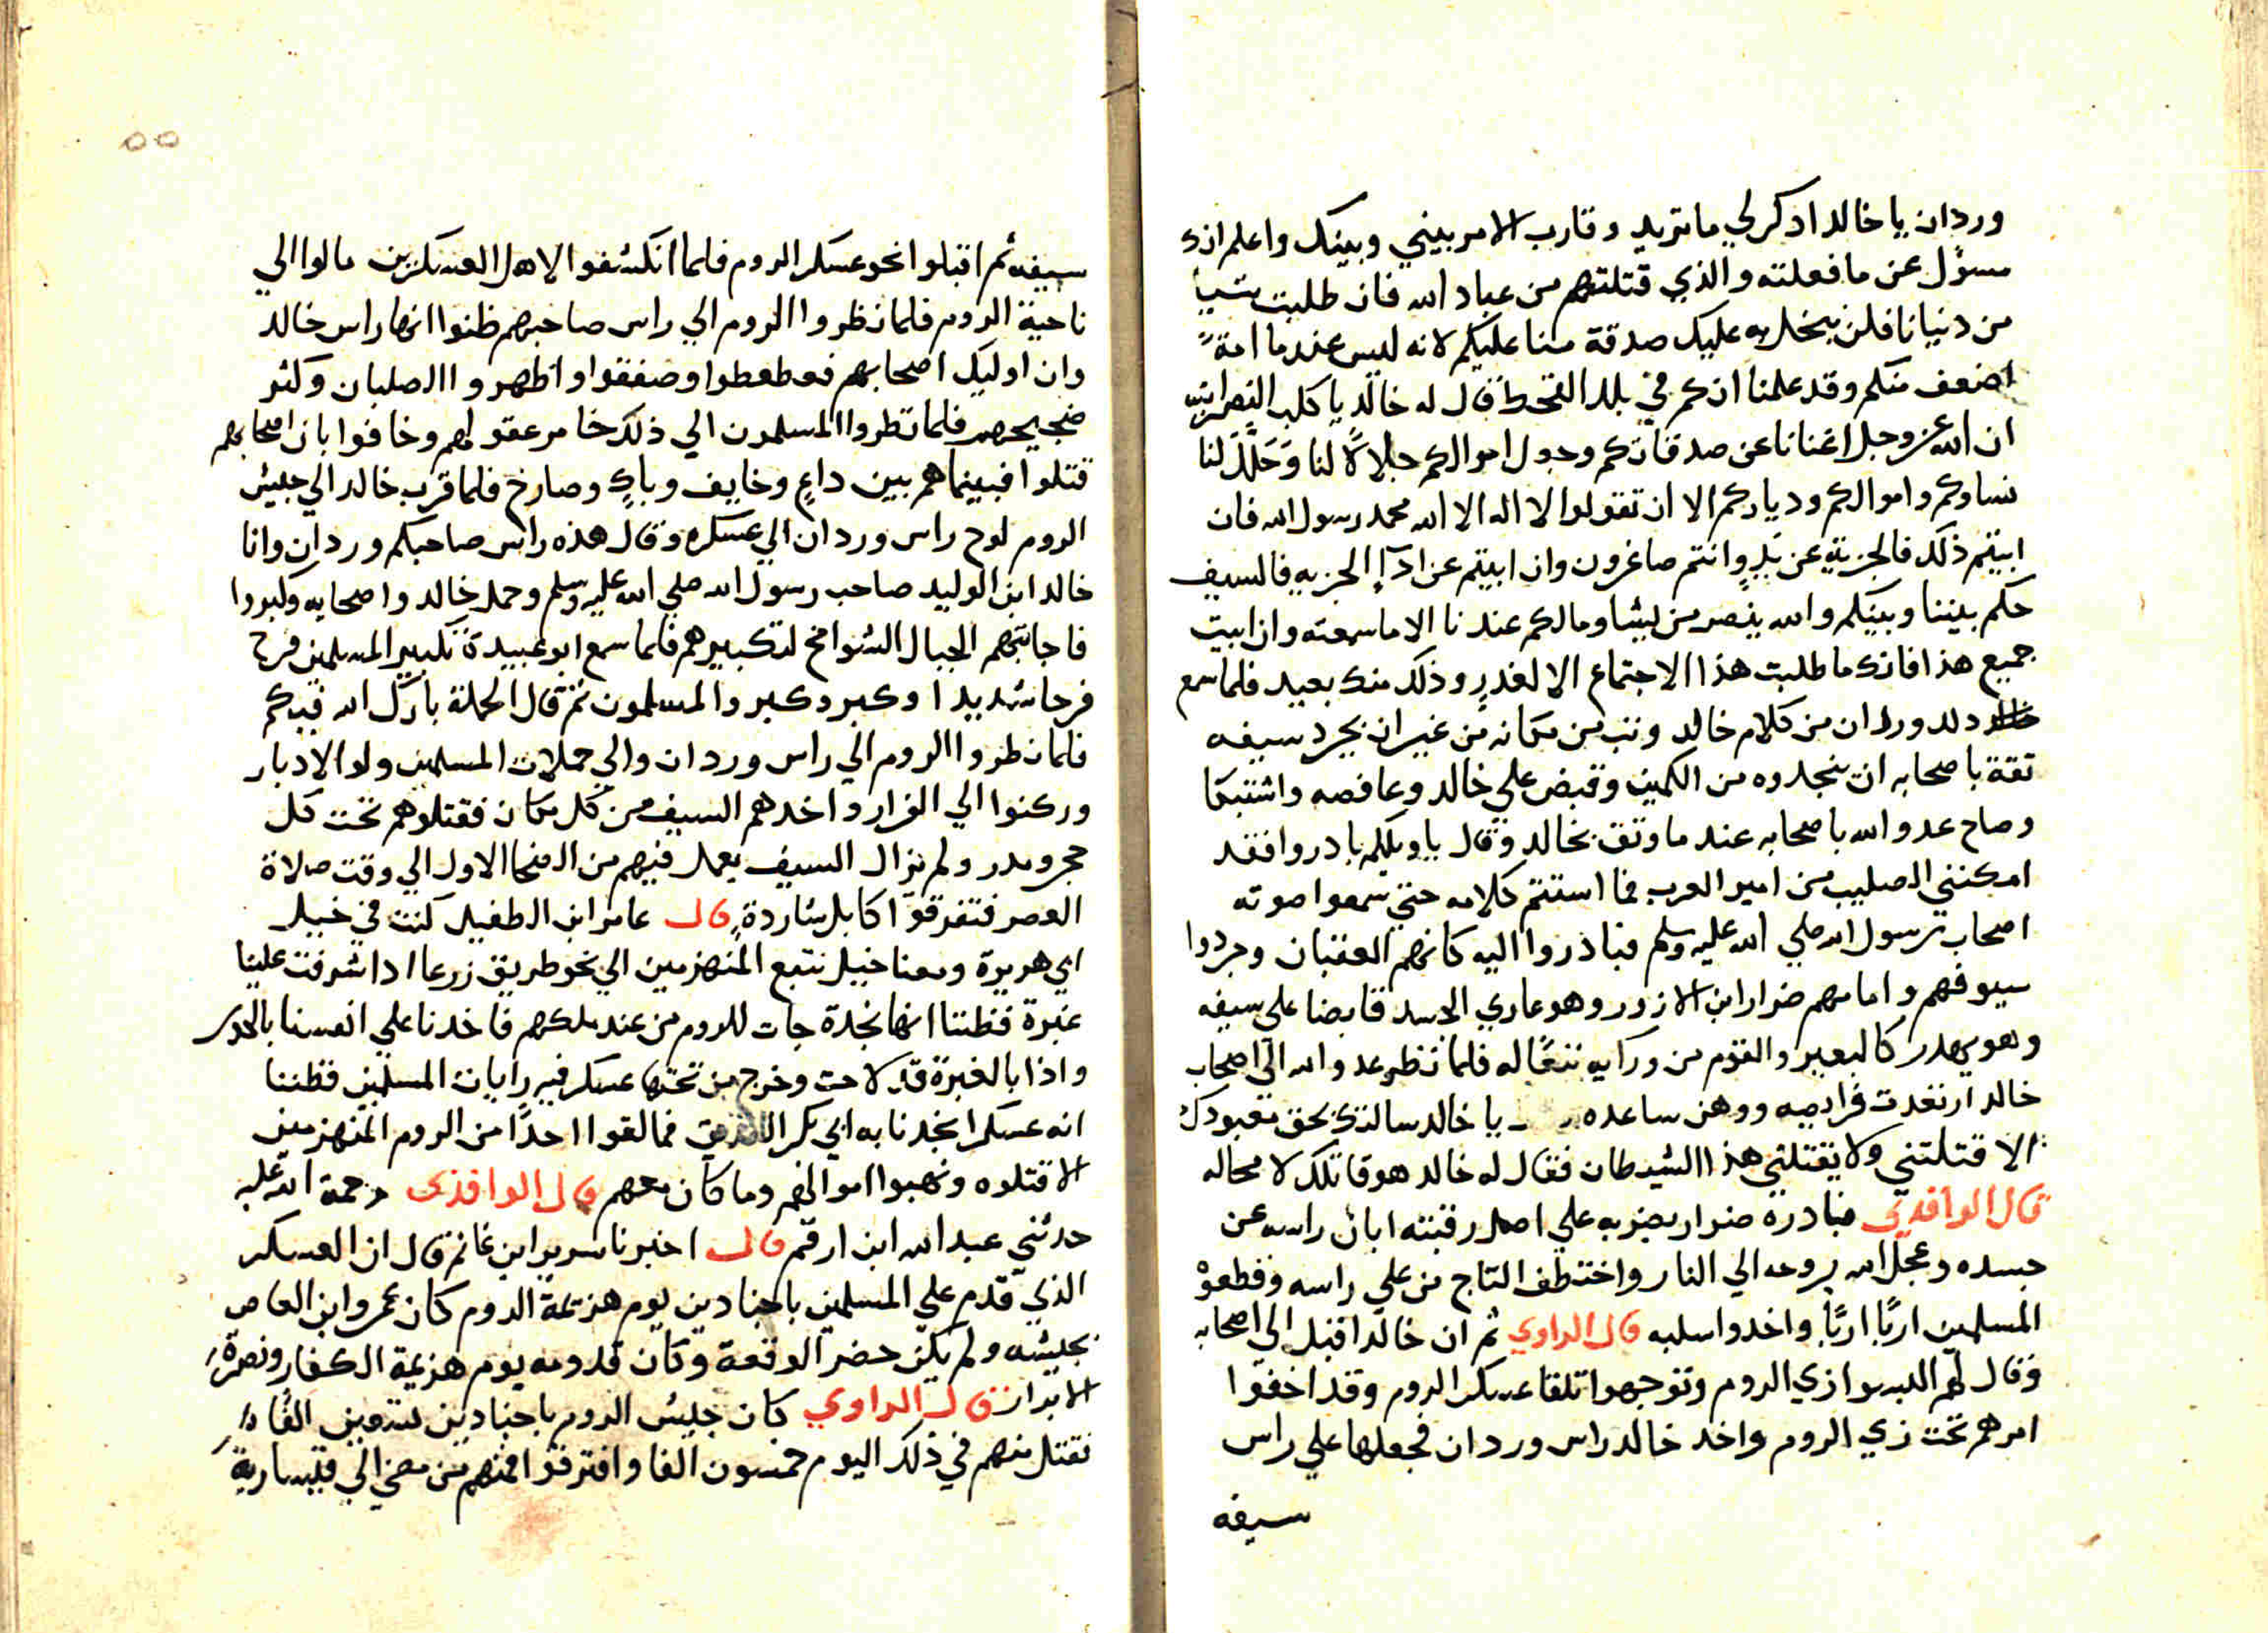 وردان يا خالد ادكر لي ما تريد وقارب الامر بيني وبينك واعلم انك
مسؤل عن ما فعلته والذي قتلتهم من عباد الله فان طلبت شيأ
من دنيانا فلن نبخل به عليك صدقة منا عليكم لانه ليس عندنا امةً
اضعف منكم وقد علمنا انكم في بلد القحط فقال له خالد يا كلب النصرانيه
ان الله عز وجل اغنانا عن صدقاتكم وجعل اموالكم حلالاً لنا وَحَلَّلَ لنا
نساوكم واموالكم ودياركم الا ان تقولوا لا اله الا الله محمد رسول الله فان
ابيتم ذلك فالجزية عن يدٍ وانتم صاغرون وان ابيتم عن ادآء الجزيه فالسيف
حكم بيننا وبينكم والله ينصر من يشا ومالكم عندنا الا ما سمعته وان ابيت
جميع هذا فانك ما طلبت هذا الاجتماع الا لغدرٍ وذلك منك بعيد فلما سمع
وردان من كلام خالد وثب من مكانه من غير ان يجرد سيفه
ثقة باصحابه ان ينجدوه من الكمين وقبض علي خالد وعافصه واشتبكا
وصاح عدو الله باصحابه عند ما وثق بخالد وقال يا ويلكم بادروا فقد
امكنني الصليب من امير العرب فما استتم كلامه حتي سمعوا صوته
اصحاب رسول الله صلي الله عليه وسلم فبادروا اليه كانهم العقبان وجردوا
سيوفهم وامامهم ضرار ابن الازور وهو عاري الجسد قابضا علي سيفه
وهو يهدر كالبعير والقوم من ورآيه تبعًا له فلما نظر عدو الله الي اصحاب
خالد ارتعدت فرايصه ووهن ساعده يا خالد سالتك بحق معبودك
الا قتلتني ولا يقتلني هذا الشيطان فقال له خالد هو قاتلك لا محاله
قال الواقدي فبادره ضرار بضربه علي اصل رقبته ابان راسه عن
جسده وعجل الله بروحه الي النار واختطف التاج من علي راسه وقطعوْ
المسلمين اربًا اربًا واخدوا سلبه قال الراوي ثم ان خالدا قبل الي اصحابه
وقال لهم البسوا زي الروم وتوجهوا تلقا عسكر الروم وقد اخفوا
امرهم تحت زي الروم واخد خالد راس وردان فجعلها علي راس
سيفه
٥٥
سيفه ثم اقبلوا نحو عسكر الروم فلما انكشفوا لاهل العسكرين مالوا الي
ناحية الروم فلما نظروا الروم الي راس صاحبهم ظنوا انها راس خالد
وان اوليك اصحابهم فعطعطوا وصفقوا واظهروا الصلبان وكثر
ضجيجهم فلما نظروا المسلمون الي ذلك خامر عقولهم وخافوا بان اصحابهم
قتلوا فبينما هم بين داعٍ وخايف وباكٍ وصارخ فلما قرب خالد الي جيش
الروم لوح راس وردان الي عسكره وقال هذه راس صاحبكم وردان وانا
خالد ابن الوليد صاحب رسول الله صلي الله عليه وسلم وحمل خالد واصحابه وكبروا
فاجابتهم الجبال الشوامخ لتكبيرهم فلما سمع ابو عبيدة تكبير المسلمين فرح
فرحا شديدا وكبر وكبروا المسلمون ثم قال الحملة بارك الله فيكم
فلما نظروا الروم الي راس وردان والي حملات المسلمين ولوا الادبار
وركنوا الي الفرار واخدهم السيف من كل مكان فقتلوهم تحت كل
حجر ومدر ولم يزال السيف يعمل فيهم من الضحا الاول الي وقت صلاة
العصر فتفرقوا كابل شاردةٍ قال عامر ابن الطفيل كنت في خيل
ابي هريرة ومعنا خيل نتبع المنهزمين الي نحو طريق زرعا ادا شرفت علينا
غبرة فظننا انها نجدة جات للروم من عند ملكهم فاخدنا علي انفسنا بالحدر
واذا بالغبرة قد لاحت وخرج من تحتها عسكر فيه رايات المسلمين فظننا
انه عسكرا نجدنا به ابي بكر الصديق فما لقوا احدًا من الروم المنهزمين
الا قتلوه ونهبوا اموالهم وما كان معهم قال الواقدي رحمة الله عليه
حدثني عبد الله ابن ارقم قال اخبرنا سرير ابن غانم قال ان العسكر
الذي قدم علي المسلمين باجنادين يوم هزيمة الروم كان عمرو ابن العاص
بجيشه ولم يكن حضر الوقعة وكان قدومه يوم هزيمة الكفار ونصرة
الابرار قال الراوي كان جيش الروم باجنادين تسعين الفًا
فقتل منهم في ذلك اليوم خمسون الفا وافترقوا فمنهم من مضي الي قيسارية